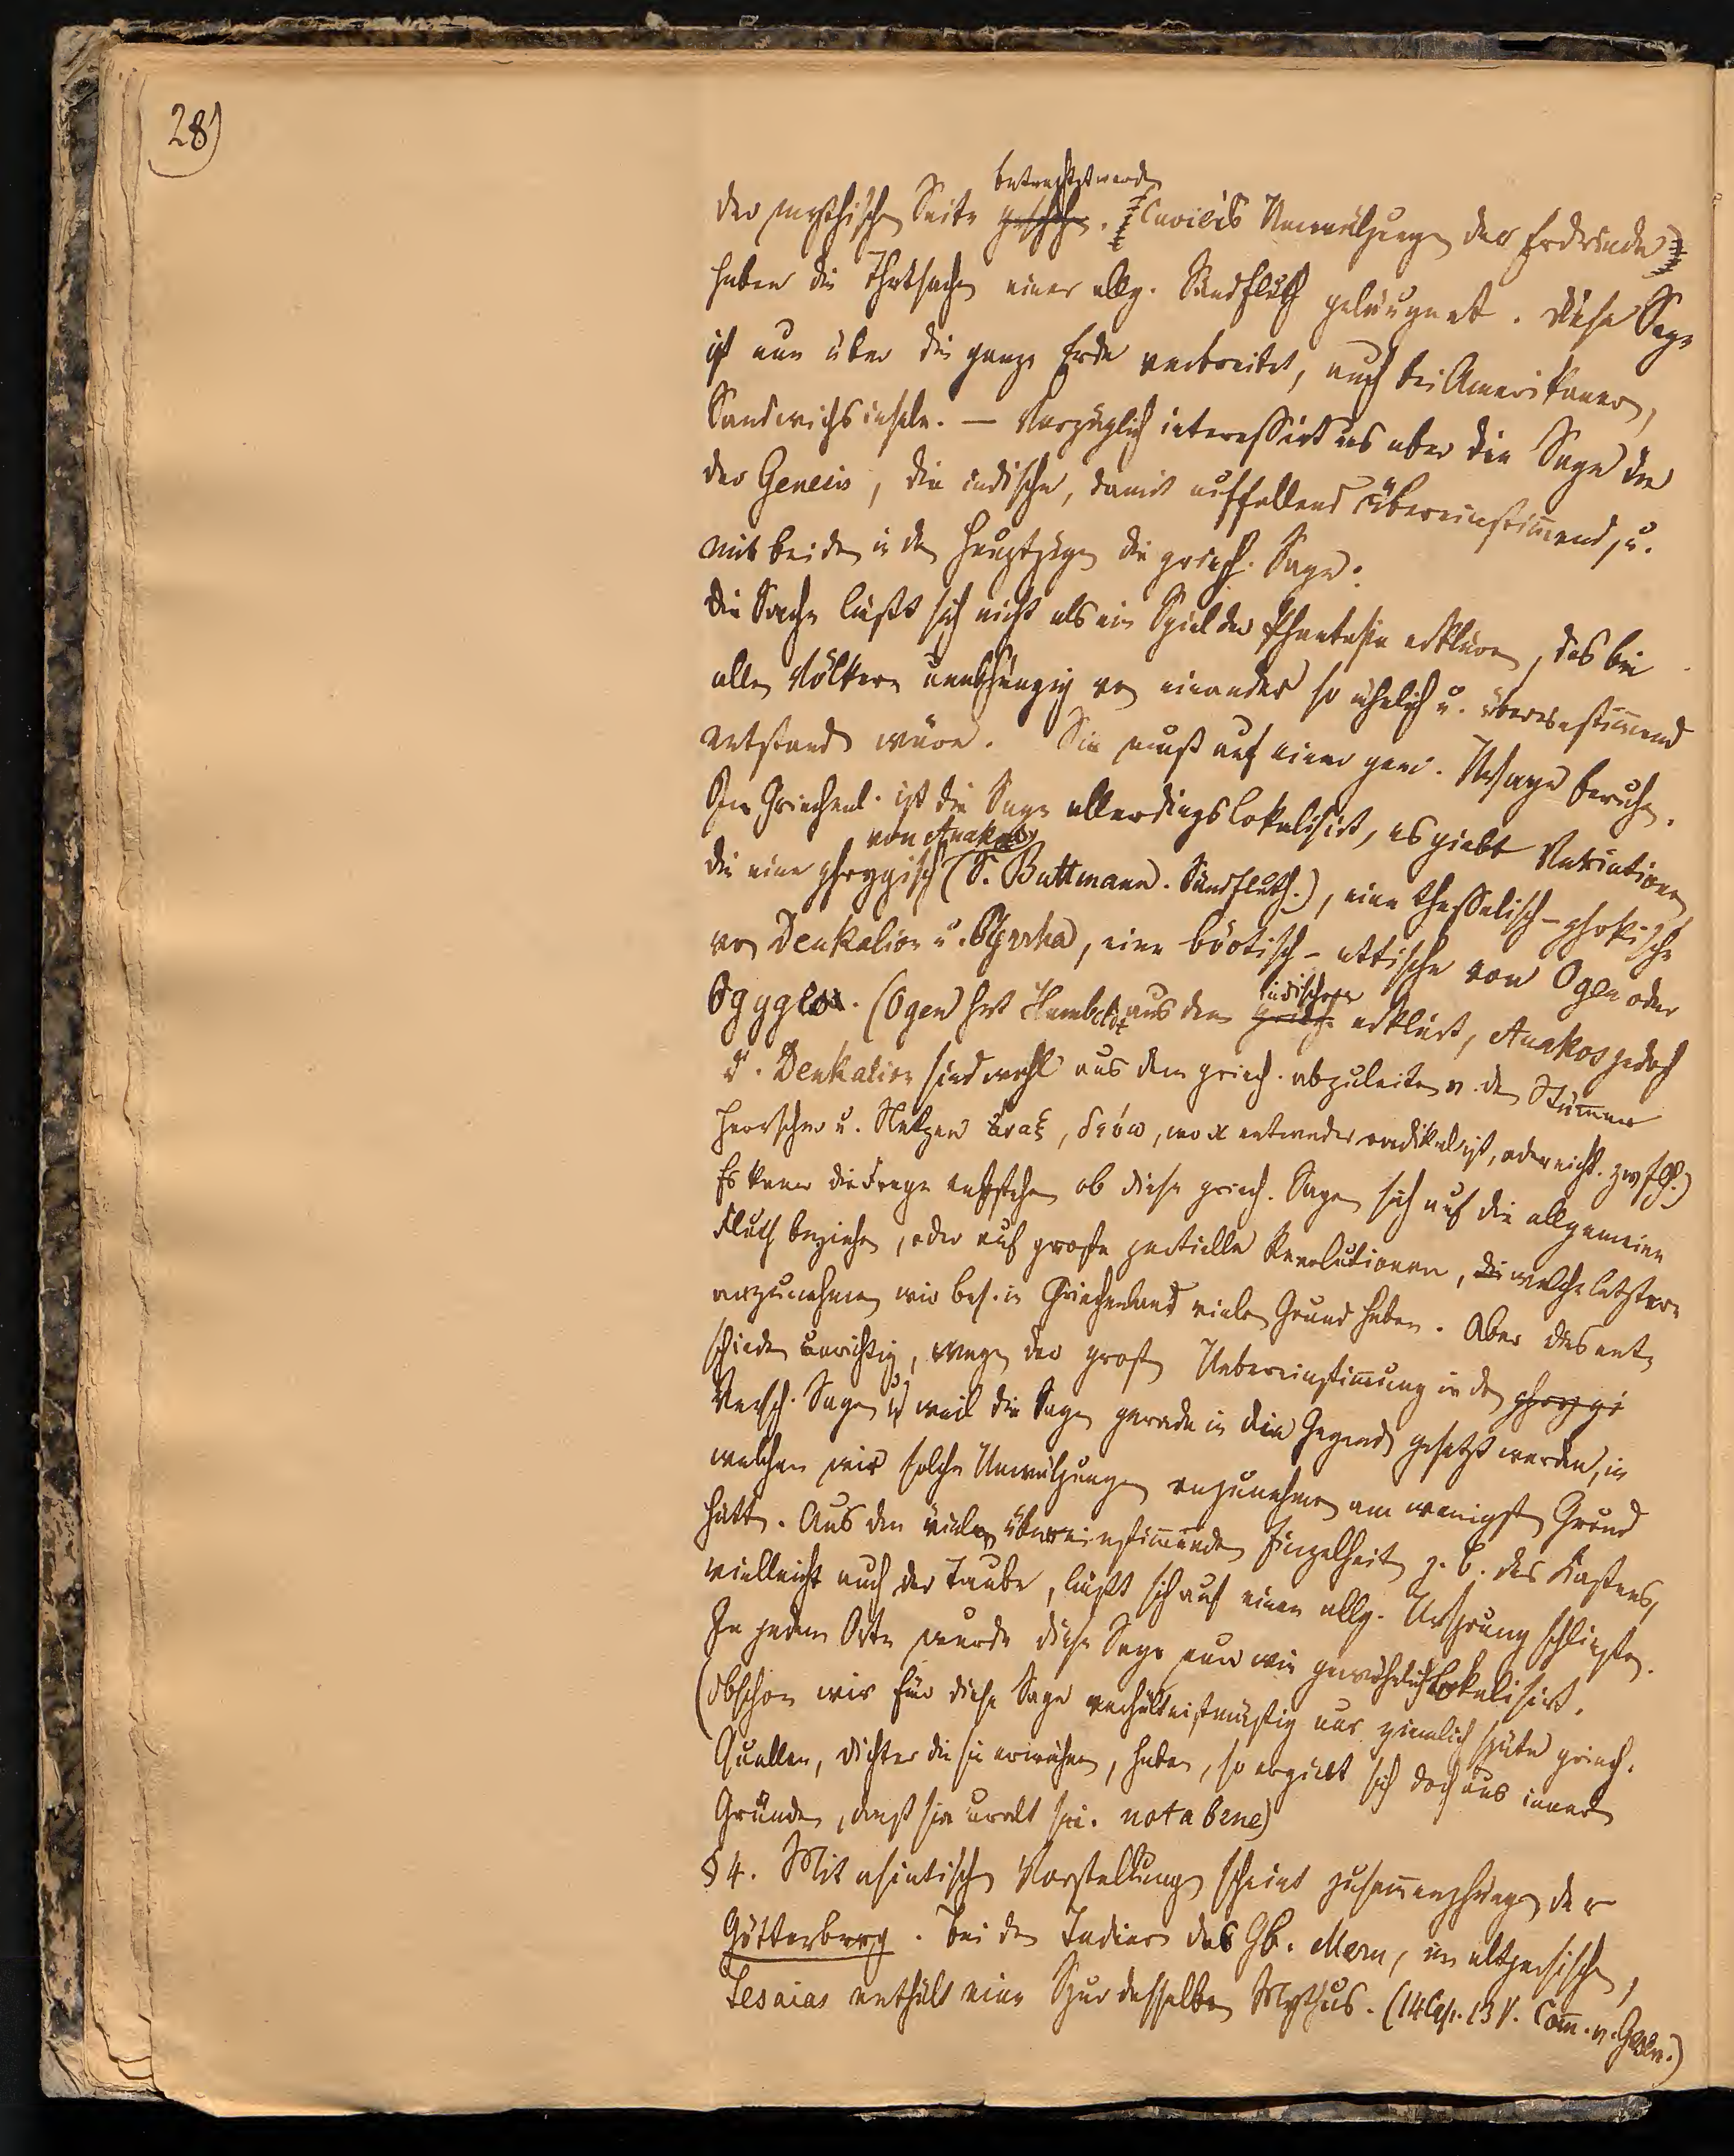 28)
betrachtet werden
der mythischen Seite geschehen. (Cuviers Umwälzungen der Erdrinde)
haben die Thatsache einer allg. Sündfluth geläugnet. Diese Sage
ist nun über die ganze Erde verbreitet, auch bei Amerikanern,
Sandwichsinseln. — Vorzüglich interessirt uns aber die Sage in
der Genesis, die indische, damit auffallend übereinstimmend, u.
mit beiden in den Hauptzügen die griech. Sage.
Die Sache läßt sich nicht als ein Spiel der Phantasie erklären, das bei
allen Völkern unabhängig von einander so ähnlich u. übereinstimmend
entstanden wäre. Sie muß auf einer gem. Ursage beruhen.
In Griechenl. ist die Sage allerdings lokalisirt, es giebt Variationen,
von Anakos
die eine phrygisch (S. Buttmann. Sündfluth.), eine thessalisch-phokische
von Deukalion u. Pyrrha, eine böotisch-attische von Ogen oder
indischen
Ogyges. (Ogen hat Humboldt aus dem griech. erklärt, Anakos jedoch
u. Deukalion sind wohl aus dem griech. abzuleiten v. den Stämmen
Herrscher u. Netzen ἄναξ, δεύω, wo κ entweder radikal ist, oder nicht.
Es kann die Frage entstehen ob diese griech. Sagen sich auf die allgemeine
Fluth beziehen, oder auf große partielle Revolutionen, die welche letztere
anzunehmen wir bes. in Griechenland vielen Grund haben. Aber dies ent-
schieden unrichtig, wegen der großen Uebereinstimmung in den phrygi
Versch. Sagen u. weil die Sagen gerade in die Gegenden gesetzt werden, in
welchen wir solche Umwälzungen anzunehmen am wenigsten Grund
hätten. Aus den vielen übereinstimmenden Einzelheiten z. B. des Kastens,
vielleicht auch der Taube, läßt sich auf einen allg. Ursprung schließen.
In jedem Orte wurde diese Sage nun wie gewöhnlich lokalisirt.
(Obschon wir für diese Sage verhältnißmäßig nur ziemlich späte griech.
Quellen, Dichter die sie erwähnen, haben, so ergiebt sich doch aus innern
Gründen, daß sie uralt sei. nota bene)
§ 4. Mit asiatischen Vorstellungen scheint zusammenzuhängen der
Götterberg. Bei den Indiern das Gb. Meru, im altpersischen,
Iesaias enthält eine Spur desselben Mythus. (14 Cap. 13 V. Comm. v. Gesen.)